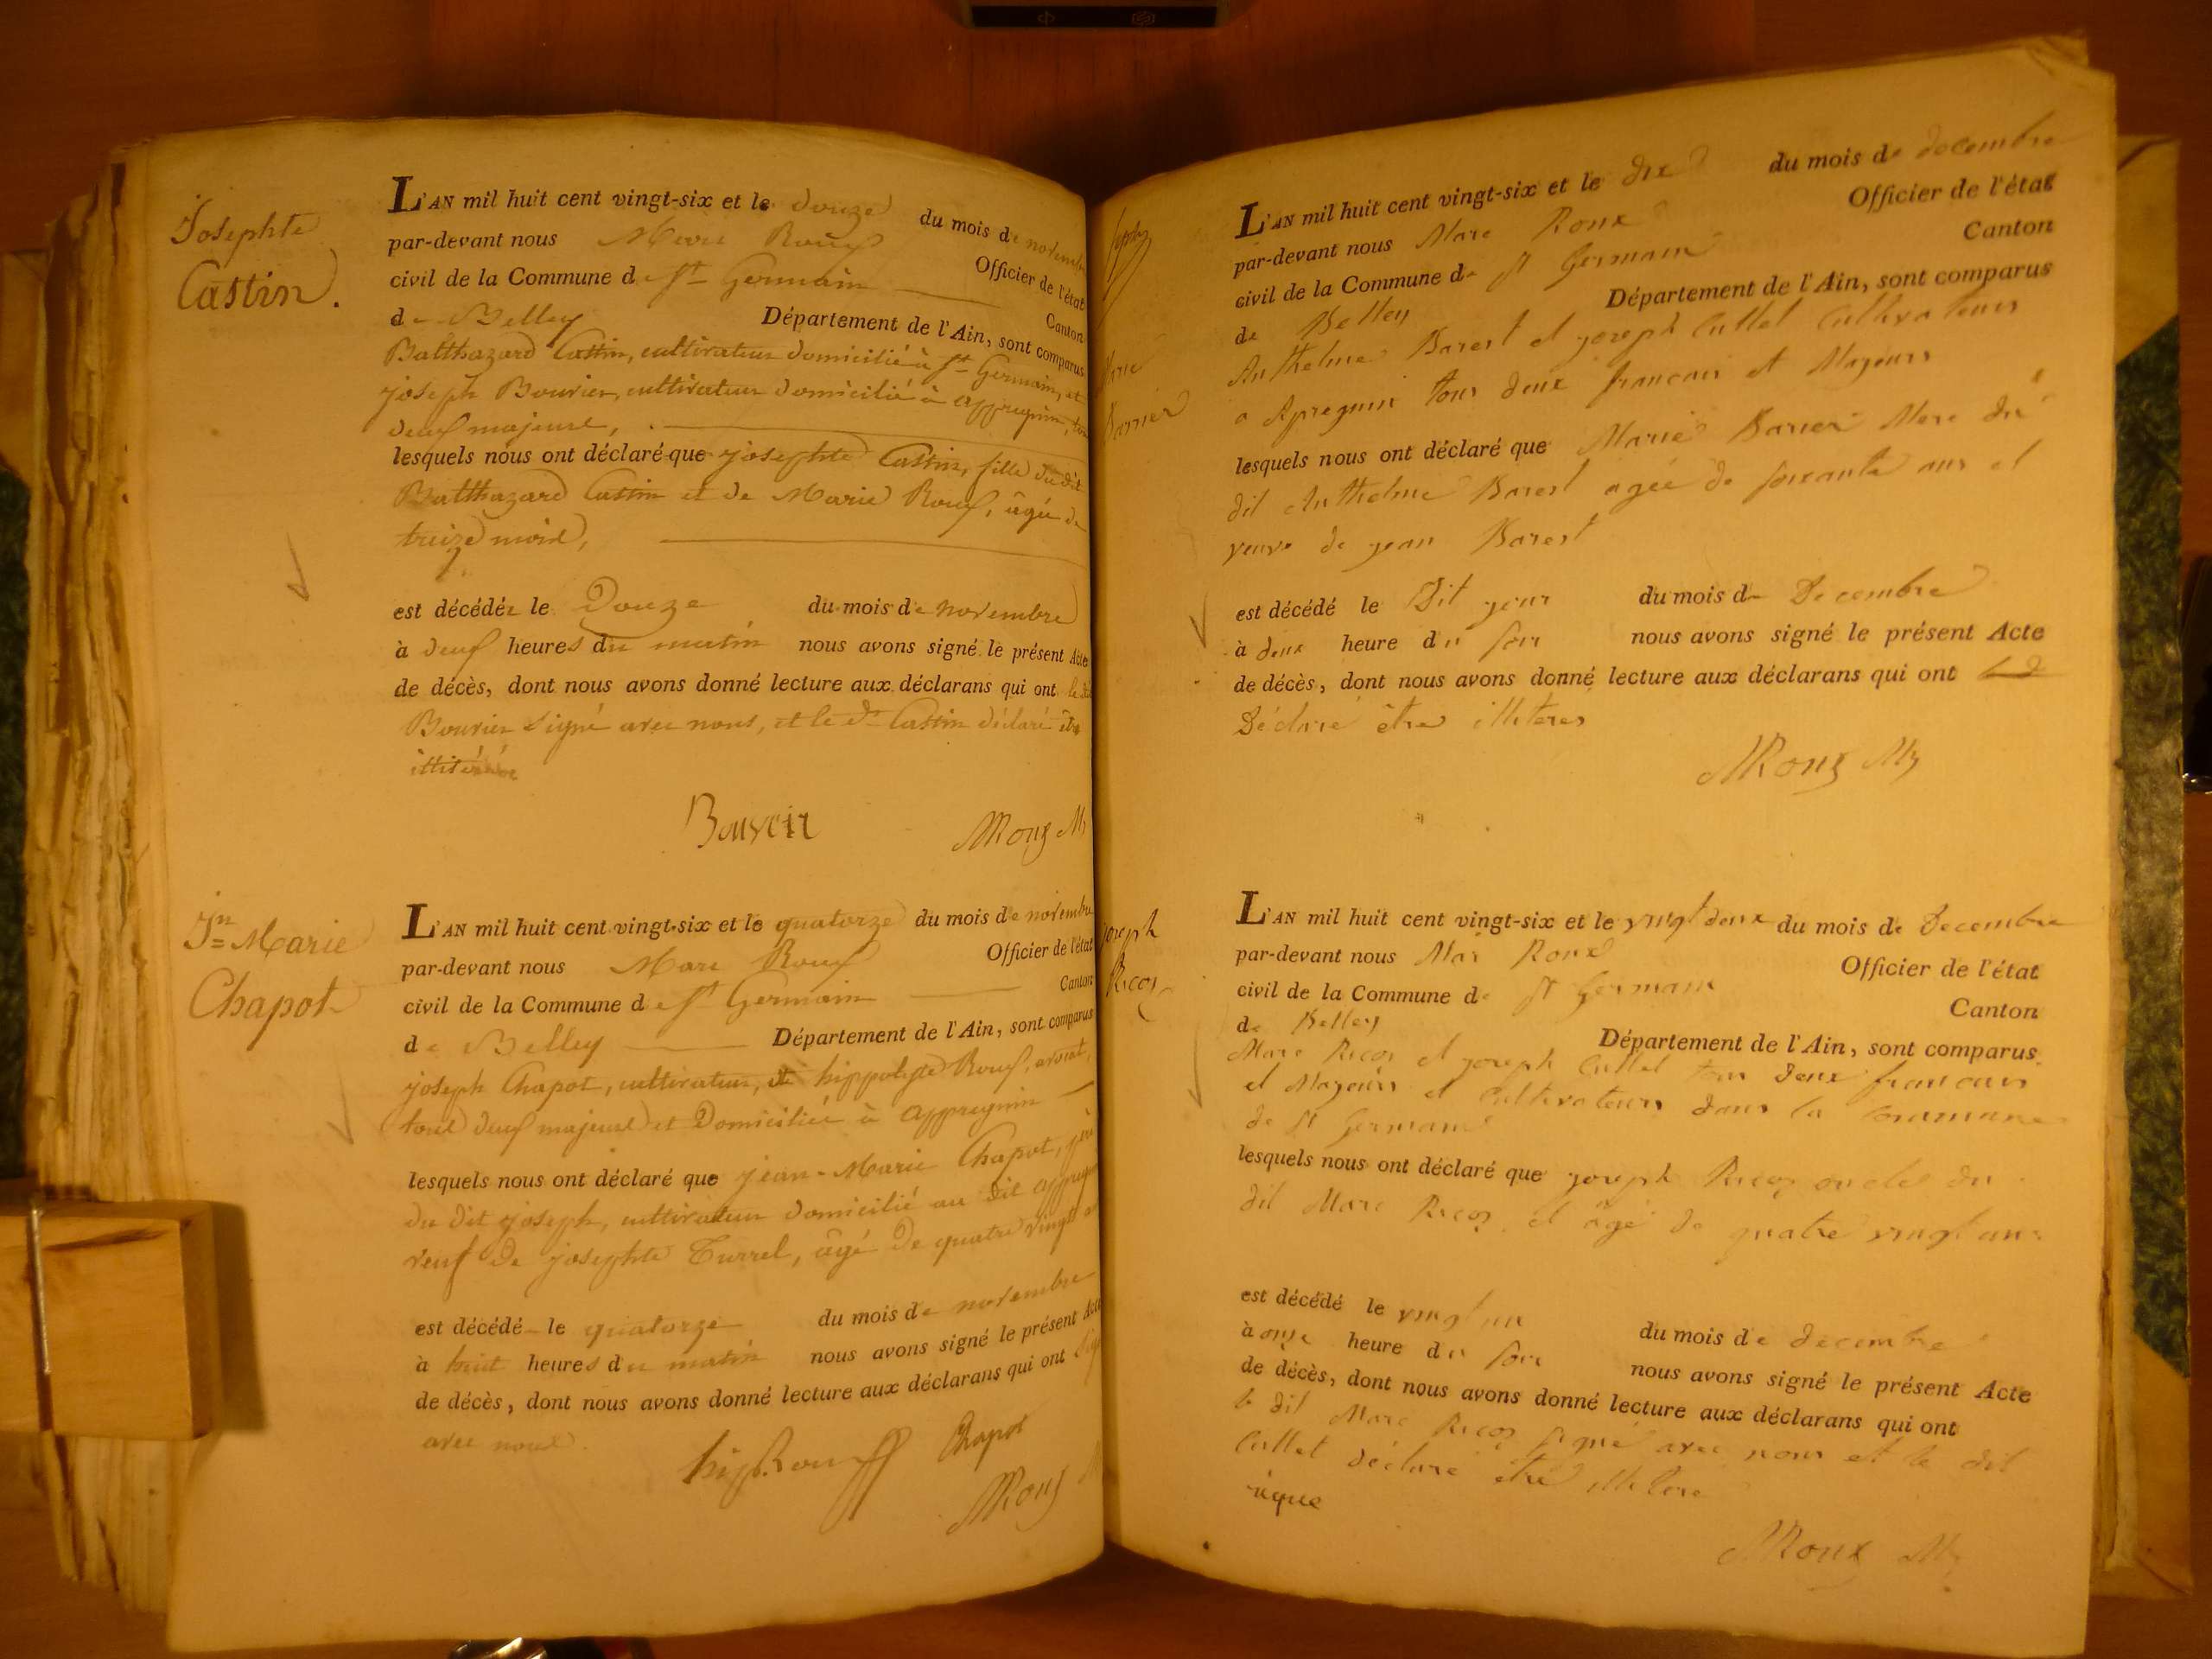 Josephte
Castin.
L'AN mil huit cent vingt-six et le douze du mois de novembre
par-devant nous Marc Roux Officier de l'état
civil de la Commune de St Germain Canton
de Belley Département de l'Ain, sont comparus
Balthazard Castin, cultivateur domicilié à St Germain, et
joseph Bouvier, cultivateur domicilié à appregnin, tous
deux majeurs,
lesquels nous ont déclaré que josephte Castin, fille du dit
Balthazard Castin et de Marie Roux, âgée de
treize mois,
est décédée le Douze du mois de novembre
à deux heures du matin nous avons signé le présent Acte
de décès, dont nous avons donné lecture aux déclarans qui ont le dit
Bouvier signé avec nous, et le dt Castin déclaré être
Bouvier MRoux M
Jn Marie
Chapot
L'AN mil huit cent vingt-six et le quatorze du mois de novembre
par-devant nous Marc Roux Officier de l'état
civil de la Commune de St Germain Canton
de Belley Département de l'Ain, sont comparus
joseph Chapot, cultivateur, et hippolyte Roux, avocat,
tous deux majeurs et Domiciliés à appregnin
lesquels nous ont déclaré que jean-Marie Chapot, père
du dit joseph, cultivateur domicilié au dit appregnin
veuf de josephte Turrel, âgé de quatre vingt
est décédé le quatorze du mois de novembre
à huit heures du matin nous avons signé le présent Acte
de décès, dont nous avons donné lecture aux déclarans qui ont signé
avec nous.
hip Roux Chapot
MRoux
Marie
Barrier
L'AN mil huit cent vingt-six et le dix du mois de decembre
par-devant nous Marc Roux Officier de l'état
civil de la Commune de St Germain Canton
de Belley Département de l'Ain, sont comparus
Anthelme Barest et joseph Cullet Cultivateurs
a Apregnin tous deux francais et Majeurs
lesquels nous ont déclaré que Marie Barier Mere du
dit Anthelme Barest agée de soixante ans et
veuve de jean Barest
est décédé le Dit jour du mois de Decembre
à deux heure du soir nous avons signé le présent Acte
de décès, dont nous avons donné lecture aux déclarans qui ont
Déclaré être illiteres
MRoux M
joseph
Ricoz
L'AN mil huit cent vingt-six et le vingt deux du mois de Decembre
par-devant nous Mar Roux Officier de l'état
civil de la Commune de St Germain Canton
de Belley Département de l'Ain, sont comparus
Marc Ricoz et joseph Cullet tous deux francais
et Majeurs et Cultivateurs dans la Commune
de St Germain
lesquels nous ont déclaré que joseph Ricoz oncle du
dit Marc Ricoz et âgé de quatre vingt ans
est décédé le vingt un du mois de decembre
à onze heure du soir nous avons signé le présent Acte
de décès, dont nous avons donné lecture aux déclarans qui ont
le dit Marc Ricoz signé avec nous et le dit
Cullet déclaré etre illitere
MRoux M